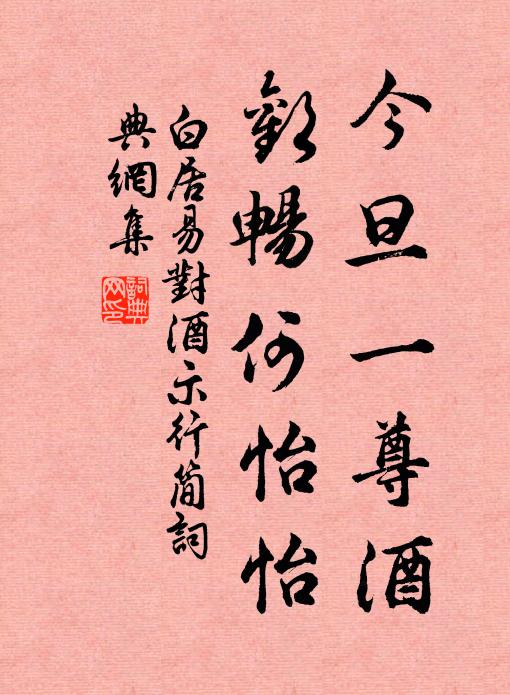 今旦一尊酒
歡暢何怡怡
白居易對酒示行簡詞
典網集
詞典
网印